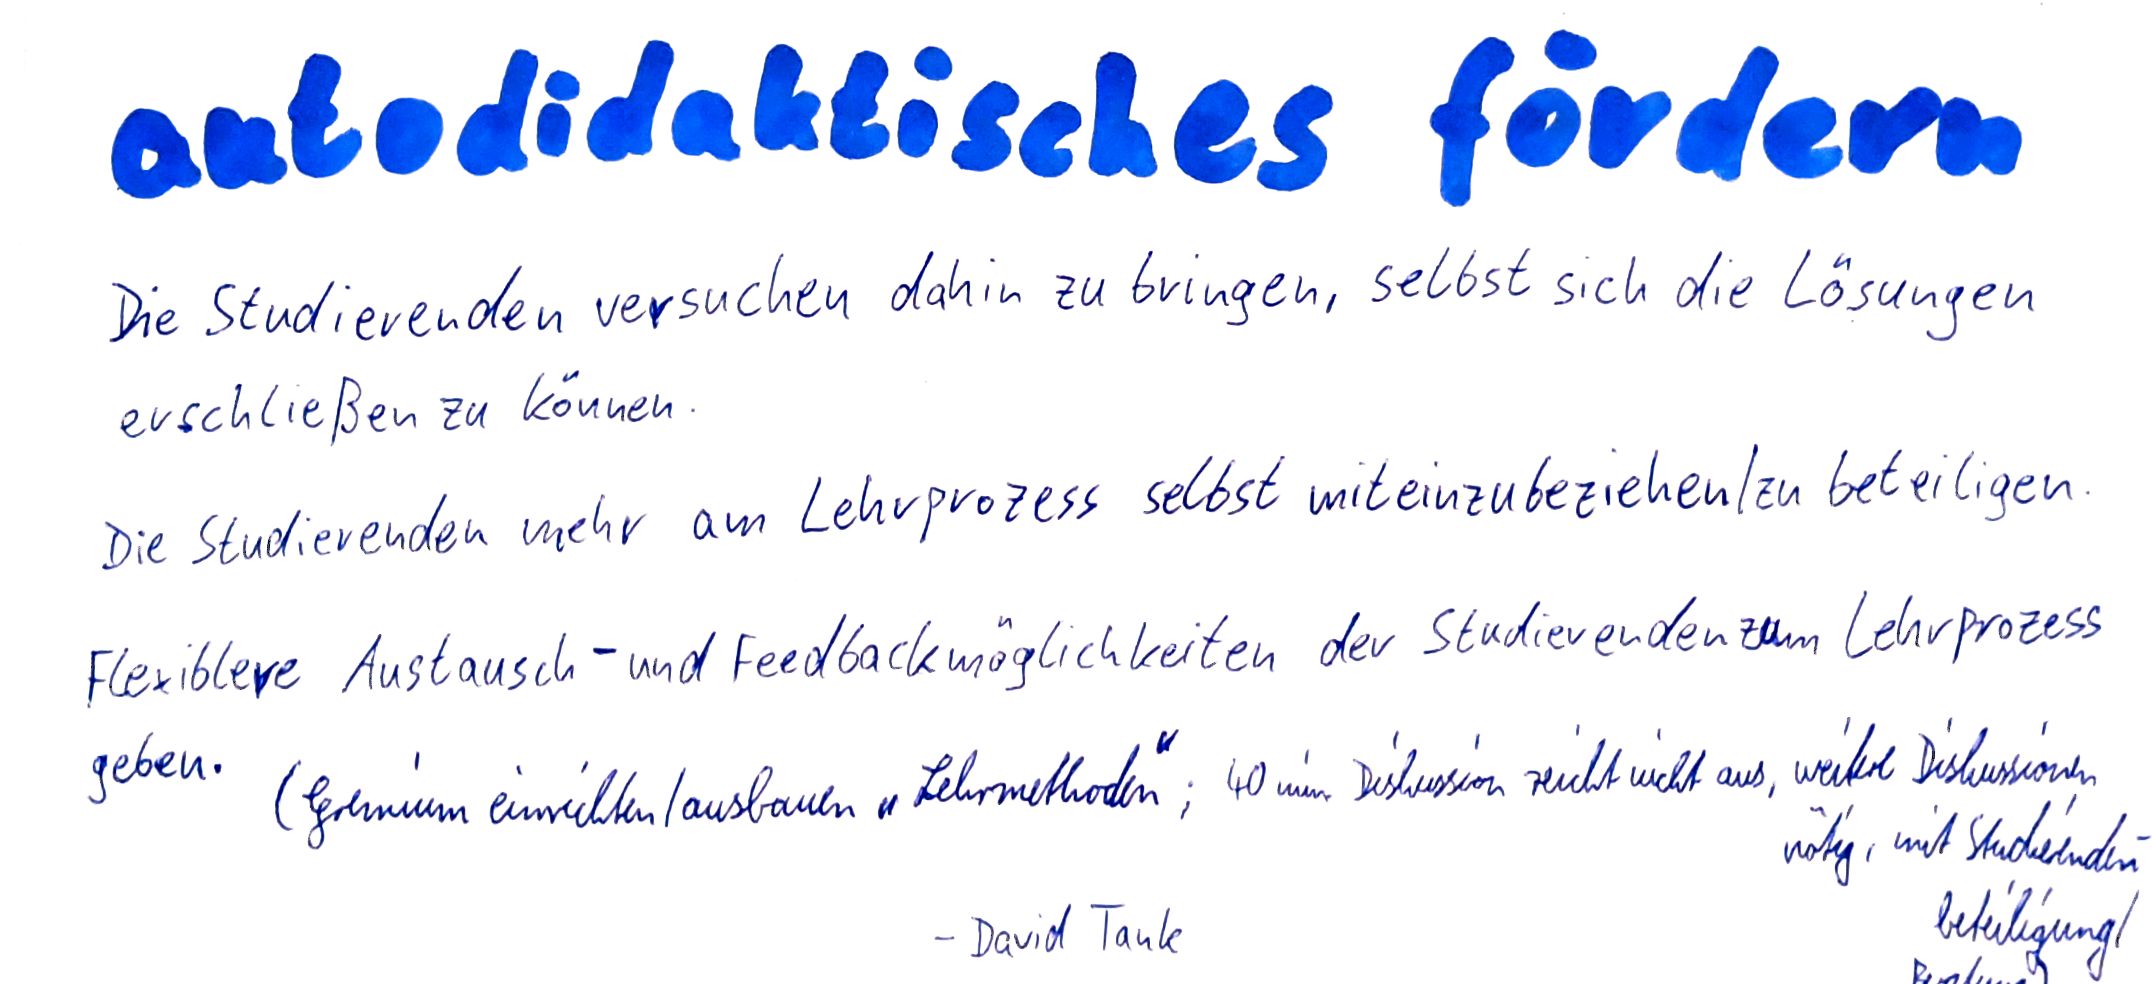 autodidaktisches fördern
Die Studierenden versuchen dahin zu bringen, selbst sich die Lösungen
erschließen zu können.
Die Studierenden mehr am Lehrprozess selbst miteinzubeziehen/zu beteiligen.
Flexiblere Austausch-und Feedbackmöglichkeiten der Studierenden zum Lehrprozess
geben. (Gremium einrichten/ausbauen „Lehrmethoden"; 40 min Diskussion reicht nicht aus, weitere Diskussionen
nötig, mit Studierenden-
beteiligung/
- David Tank